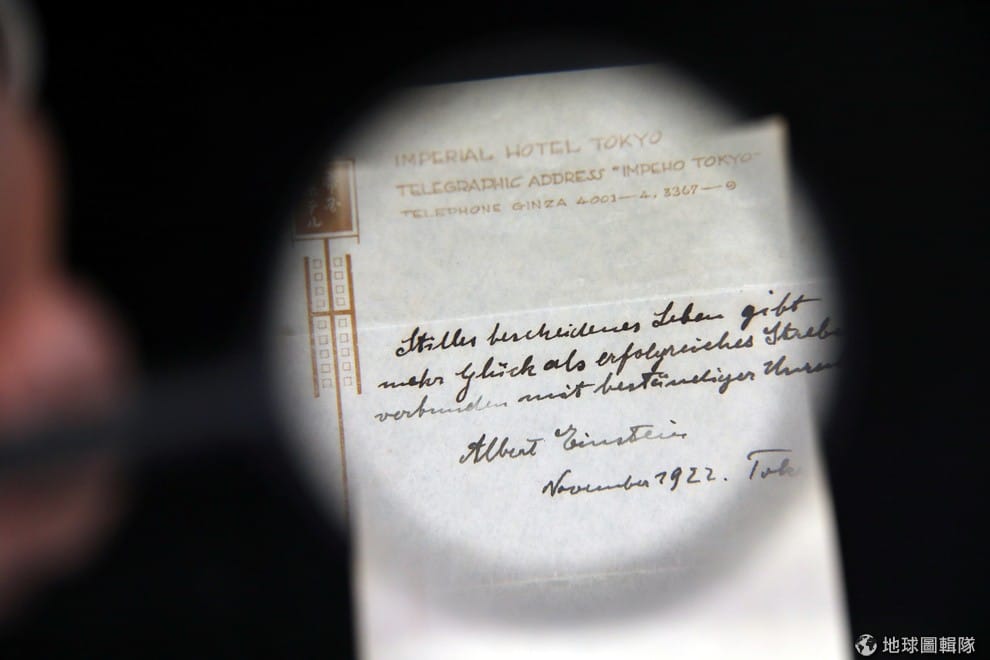 IMPERIAL HOTEL TOKYO
TELEGRAPHIC ADDRESS "IMPEHO TOKYO"
TELEPHONE GINZA 4001—4, 3367—9
Stilles bescheidenes Leben gibt
mehr Glück als erfolgreiches Strebe
verbunden mit beständiger Unru
Albert Einstein
November 1922. Tok
地球圖輯隊